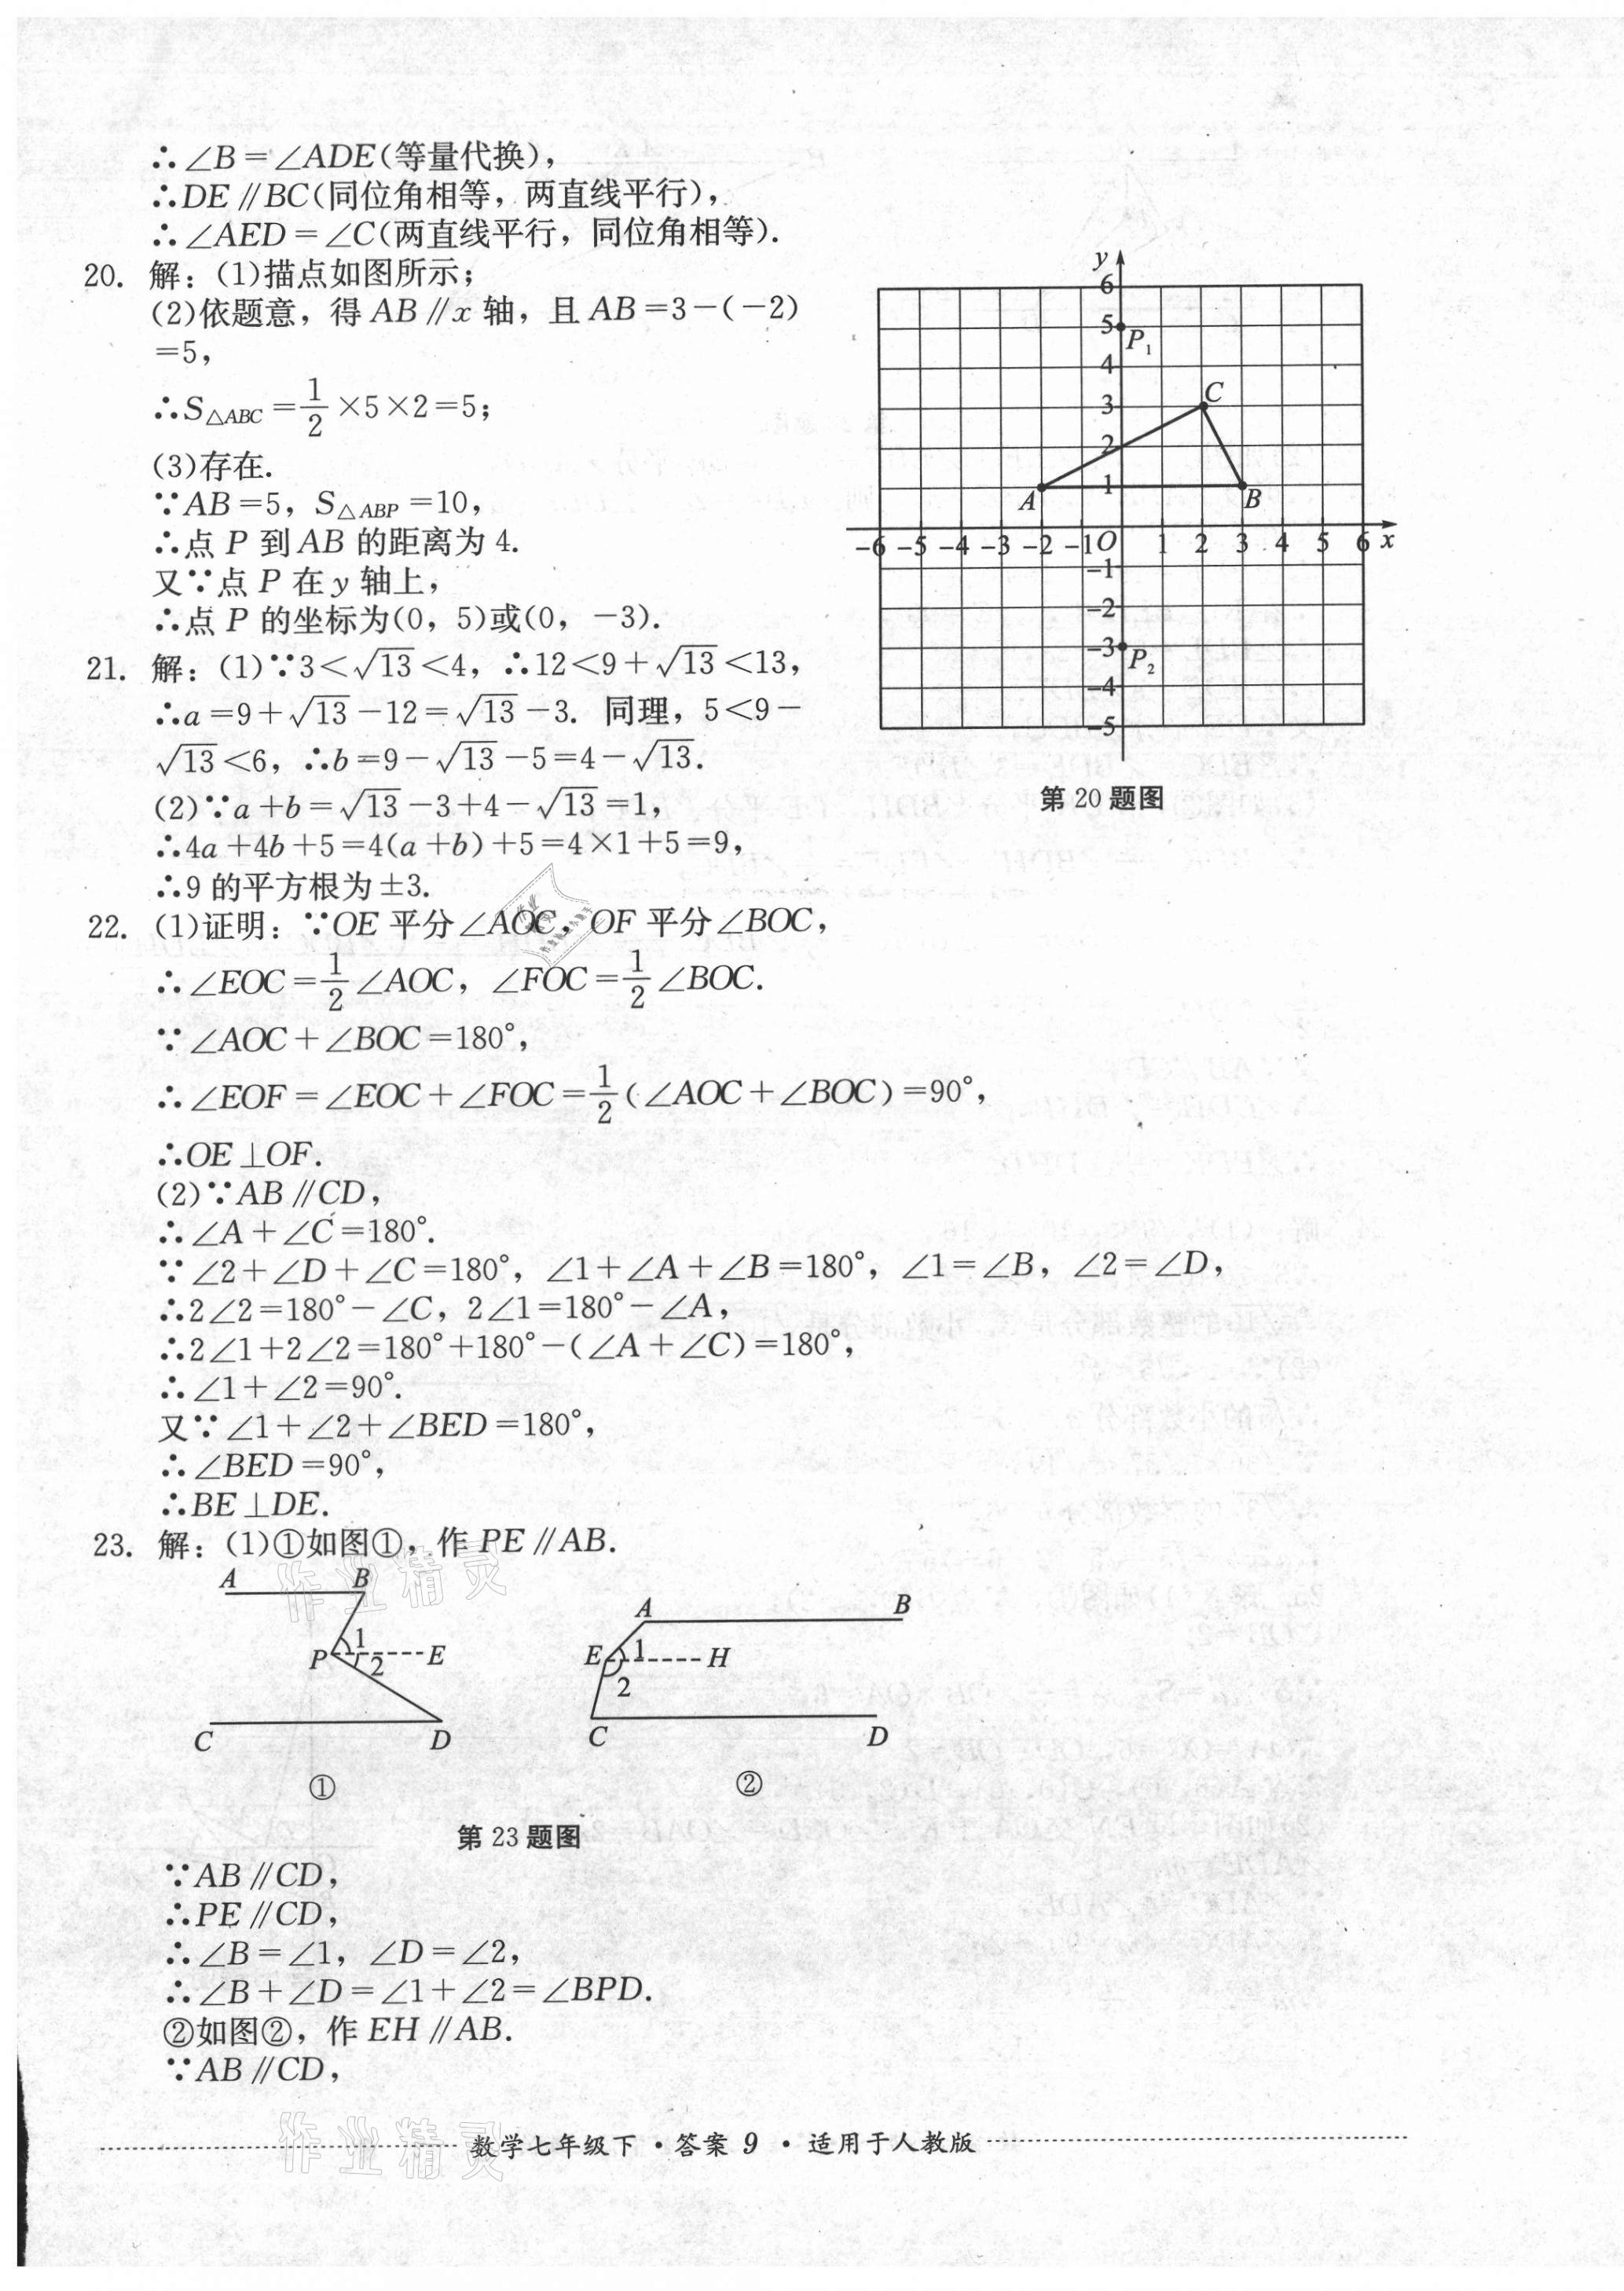 ∴∠B=∠ADE(等量代换)，
∴DE∥BC(同位角相等，两直线平行)，
∴∠AED=∠C(两直线平行，同位角相等).
20. 解：(1)描点如图所示；
(2)依题意，得 AB∥x 轴，且 AB=3-(-2)
=5，
∴S△ABC=1/2×5×2=5；
(3)存在.
∵AB=5，S△ABP=10，
∴点 P 到AB 的距离为 4.
又∵点 P 在 y 轴上，
∴点 P 的坐标为(0，5)或(0，-3).
y
6
5
P₁
4
C
3
2
A
1
B
-6 -5 -4 -3 -2 -1 O 1 2 3 4 5 6 x
-1
-2
-3
P₂
-4
-5
第 20 题图
21. 解：(1)∵3<√13<4，∴12<9+√13<13，
∴a=9+√13-12=√13-3. 同理，5<9-
√13<6，∴b=9-√13-5=4-√13.
(2)∵a+b=√13-3+4-√13=1，
∴4a+4b+5=4(a+b)+5=4×1+5=9，
∴9 的平方根为±3.
22. (1)证明：∵OE 平分∠AOC，OF 平分∠BOC，
∴∠EOC=1/2∠AOC，∠FOC=1/2∠BOC.
∵∠AOC+∠BOC=180°，
∴∠EOF=∠EOC+∠FOC=1/2(∠AOC+∠BOC)=90°，
∴OE⊥OF.
(2)∵AB∥CD，
∴∠A+∠C=180°.
∵∠2+∠D+∠C=180°，∠1+∠A+∠B=180°，∠1=∠B，∠2=∠D，
∴2∠2=180°-∠C，2∠1=180°-∠A，
∴2∠1+2∠2=180°+180°-(∠A+∠C)=180°，
∴∠1+∠2=90°.
又∵∠1+∠2+∠BED=180°，
∴∠BED=90°，
∴BE⊥DE.
23. 解：(1)①如图①，作 PE∥AB.
A B
P 1 2 E
C D
①
A B
E 1 2 H
C D
②
第 23 题图
∵AB∥CD，
∴PE∥CD，
∴∠B=∠1，∠D=∠2，
∴∠B+∠D=∠1+∠2=∠BPD.
②如图②，作 EH∥AB.
∵AB∥CD，
作业精灵
作业精灵
数学七年级下·答案 9·适用于人教版